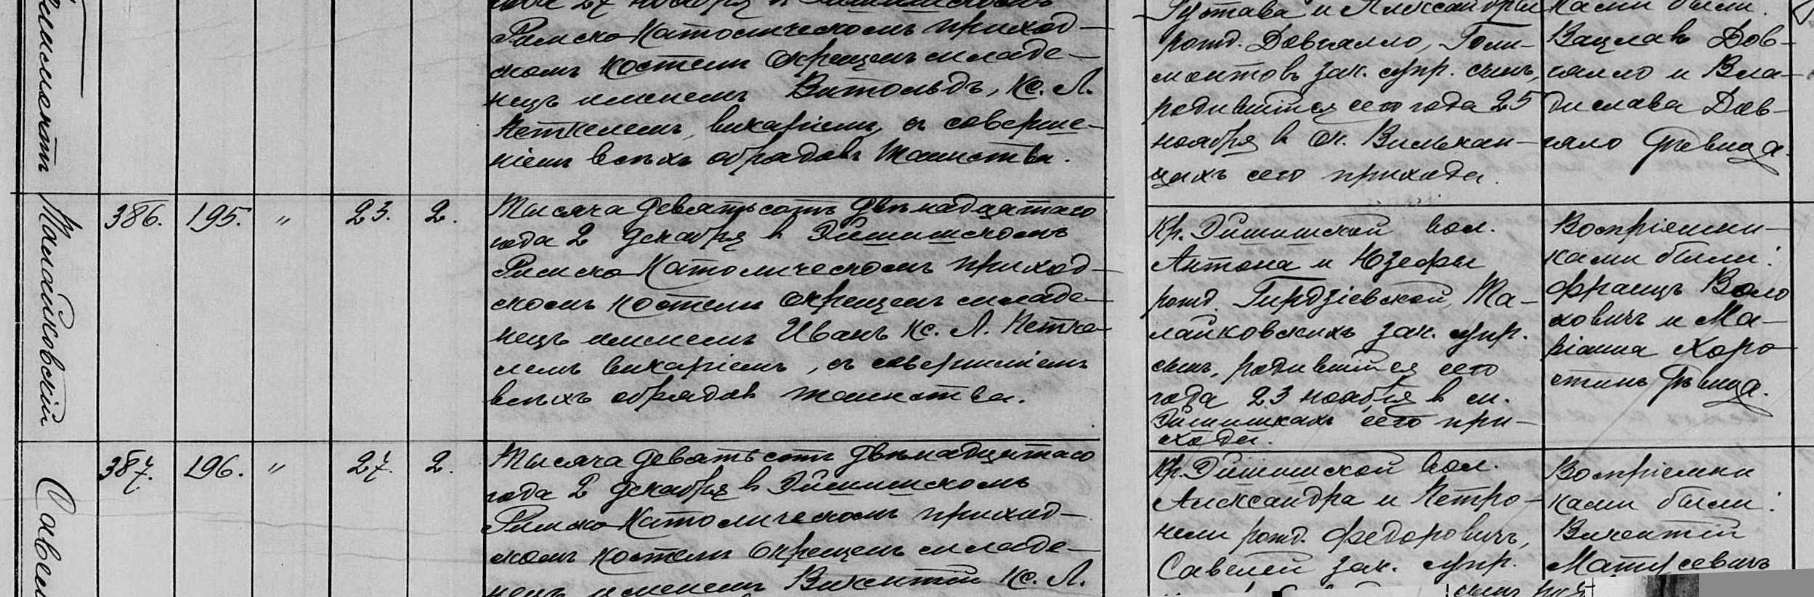 Римско-Католическомъ приход-
скомъ костелѣ окрещенъ младе-
нецъ именемъ Витольдъ, Кс. Л.
Петкелемъ, викаріемъ, съ соверше-
ніемъ всѣхъ обрядовъ таинства.
Густава и Александры
рожд. Довгялло,
монтовъ зак. супр. сынъ,
родившійся сего года 25
ноября в ок.
цахъ сего прихода.
ками были:
Вацлавъ Дов-
гялло и Вла-
дислава Дов-
гяло дѣвица.
Малайковскій
386. 195. " 23. 2.
Тысяча девятьсотъ двѣнадцатаго
года 2 декабря в Эйшишскомъ
Римско-Католическомъ приход-
скомъ костелѣ окрещенъ младе-
нецъ именемъ Иванъ Кс. Л. Петке-
лемъ викаріемъ, съ совершеніемъ
всѣхъ обрядовъ таинства.
Кр. Эйшишской вол.
Антона и Юзефы
рожд Гирдзіевской, Ма-
лайковскихъ зак. супр.
сынъ, родившійся сего
года 23 ноября в м.
Эйшишкахъ сего при-
хода.
Воспріемни-
ками были:
Францъ Воло
ховичъ и Ма-
ріанна Хоро
дѣвица.
387. 196. " 27. 2.
Тысяча девятьсотъ двѣнадцатаго
года 2 декабря в Эйшишскомъ
Римско-Католическомъ приход-
скомъ костелѣ окрещенъ младе-
нецъ именемъ Викентій Кс. Л.
Кр. Эйшишской вол.
Александра и Петро-
нели рожд. Федоровичъ,
Савелей зак. супр.
Воспріемни
ками были:
Викентій
Матусевичъ